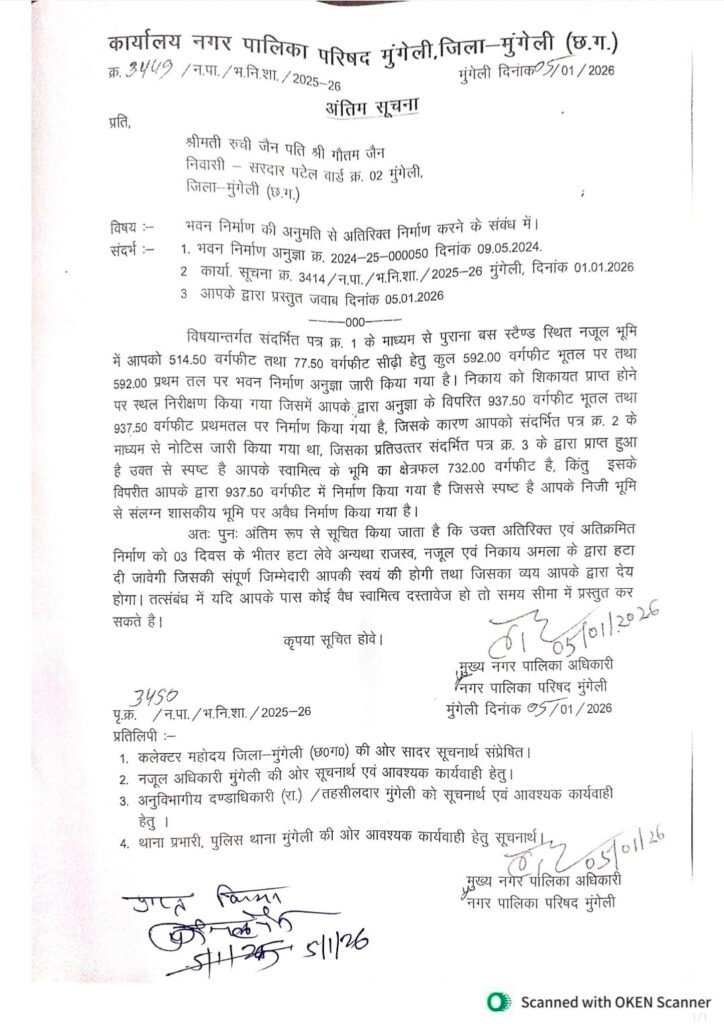 कार्यालय नगर पालिका परिषद मुंगेली,जिला–मुंगेली (छ.ग.)
क्र. 3449 /न.पा./भ.नि.शा./2025-26 मुंगेली दिनांक 05/01/2026
अंतिम सूचना
प्रति,
श्रीमती रुची जैन पति श्री गौतम जैन
निवासी – सरदार पटेल वार्ड क्र. 02 मुंगेली,
जिला–मुंगेली (छ.ग.)
विषय :– भवन निर्माण की अनुमति से अतिरिक्त निर्माण करने के संबंध में।
संदर्भ :– 1. भवन निर्माण अनुज्ञा क्र. 2024-25-000050 दिनांक 09.05.2024.
2 कार्या. सूचना क्र. 3414/न.पा./भ.नि.शा./2025-26 मुंगेली, दिनांक 01.01.2026
3 आपके द्वारा प्रस्तुत जवाब दिनांक 05.01.2026
-----000-----
विषयान्तर्गत संदर्भित पत्र क्र. 1 के माध्यम से पुराना बस स्टैण्ड स्थित नजूल भूमि
में आपको 514.50 वर्गफीट तथा 77.50 वर्गफीट सीढ़ी हेतु कुल 592.00 वर्गफीट भूतल पर तथा
592.00 प्रथम तल पर भवन निर्माण अनुज्ञा जारी किया गया है। निकाय को शिकायत प्राप्त होने
पर स्थल निरीक्षण किया गया जिसमें आपके द्वारा अनुज्ञा के विपरित 937.50 वर्गफीट भूतल तथा
937.50 वर्गफीट प्रथमतल पर निर्माण किया गया है, जिसके कारण आपको संदर्भित पत्र क्र. 2 के
माध्यम से नोटिस जारी किया गया था, जिसका प्रतिउत्तर संदर्भित पत्र क्र. 3 के द्वारा प्राप्त हुआ
है उक्त से स्पष्ट है आपके स्वामित्व के भूमि का क्षेत्रफल 732.00 वर्गफीट है, किंतु इसके
विपरीत आपके द्वारा 937.50 वर्गफीट में निर्माण किया गया है जिससे स्पष्ट है आपके निजी भूमि
से संलग्न शासकीय भूमि पर अवैध निर्माण किया गया है।
अतः पुनः अंतिम रूप से सूचित किया जाता है कि उक्त अतिरिक्त एवं अतिक्रमित
निर्माण को 03 दिवस के भीतर हटा लेवे अन्यथा राजस्व, नजूल एवं निकाय अमला के द्वारा हटा
दी जावेगी जिसकी संपूर्ण जिम्मेदारी आपकी स्वयं की होगी तथा जिसका व्यय आपके द्वारा देय
होगा। तत्संबंध में यदि आपके पास कोई वैध स्वामित्व दस्तावेज हो तो समय सीमा में प्रस्तुत कर
सकते है।
कृपया सूचित होवे।
05/01/2026
मुख्य नगर पालिका अधिकारी
नगर पालिका परिषद मुंगेली
3450
पृ.क्र. /न.पा./भ.नि.शा./2025-26 मुंगेली दिनांक 05/01/2026
प्रतिलिपी :–
1. कलेक्टर महोदय जिला–मुंगेली (छ0ग0) की ओर सादर सूचनार्थ संप्रेषित।
2. नजूल अधिकारी मुंगेली की ओर सूचनार्थ एवं आवश्यक कार्यवाही हेतु।
3. अनुविभागीय दण्डाधिकारी (रा.) /तहसीलदार मुंगेली को सूचनार्थ एवं आवश्यक कार्यवाही
हेतु ।
4. थाना प्रभारी, पुलिस थाना मुंगेली की ओर आवश्यक कार्यवाही हेतु सूचनार्थ।
05/01/26
मुख्य नगर पालिका अधिकारी
नगर पालिका परिषद मुंगेली
5/1/26 5/1/26
Scanned with OKEN Scanner
1/1